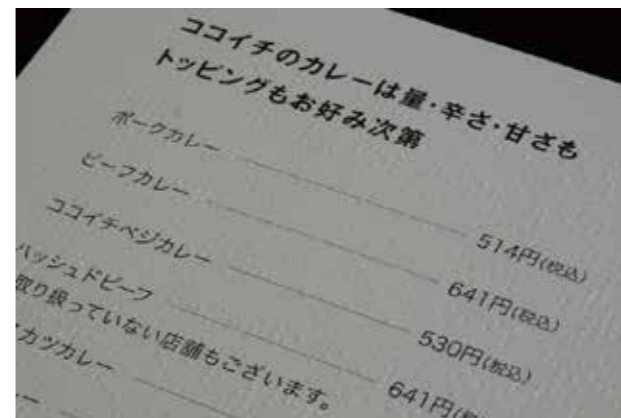 ココイチのカレーは量・辛さ・甘さも
トッピングもお好み次第
ポークカレー 514円(税込)
ビーフカレー 641円(税込)
ココイチベジカレー 530円(税込)
ハッシュドビーフ 641円(税
取り扱っていない店舗もございます。
カツカレー